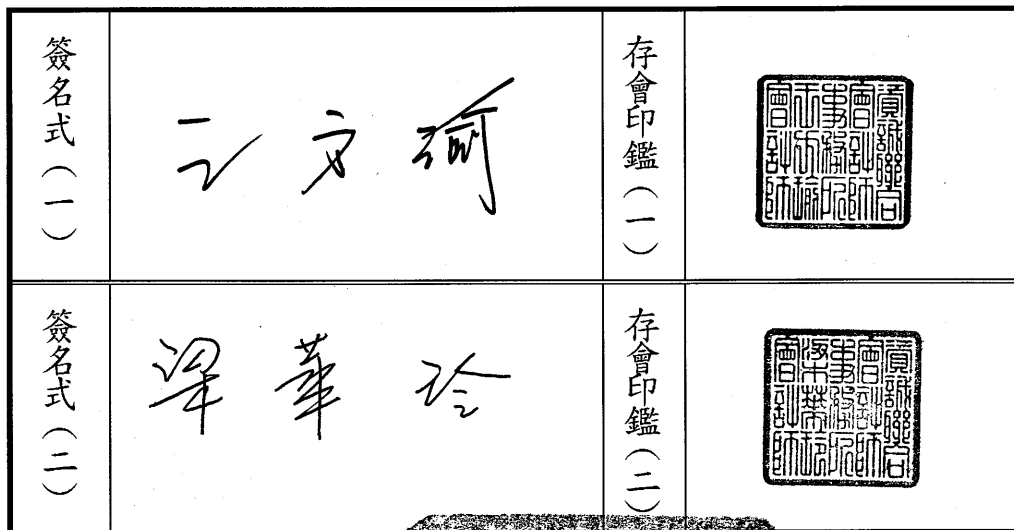 簽名式（一）
王方瑜
存會印鑑（一）
資誠聯合
會計師
事務所
王方瑜
會計師
簽名式（二）
梁華玲
存會印鑑（二）
資誠聯合
會計師
事務所
梁華玲
會計師